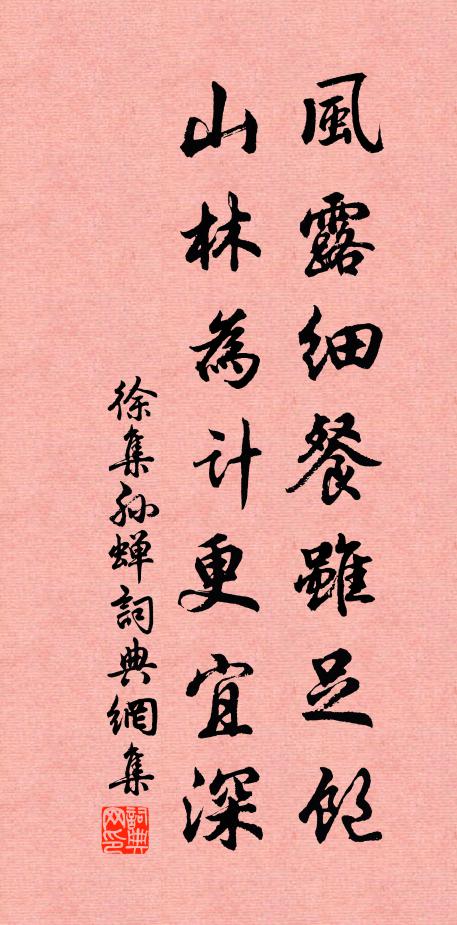 風露細餐雖足飽
山林為計更宜深
徐集孙蝉詞典網集
詞典网印